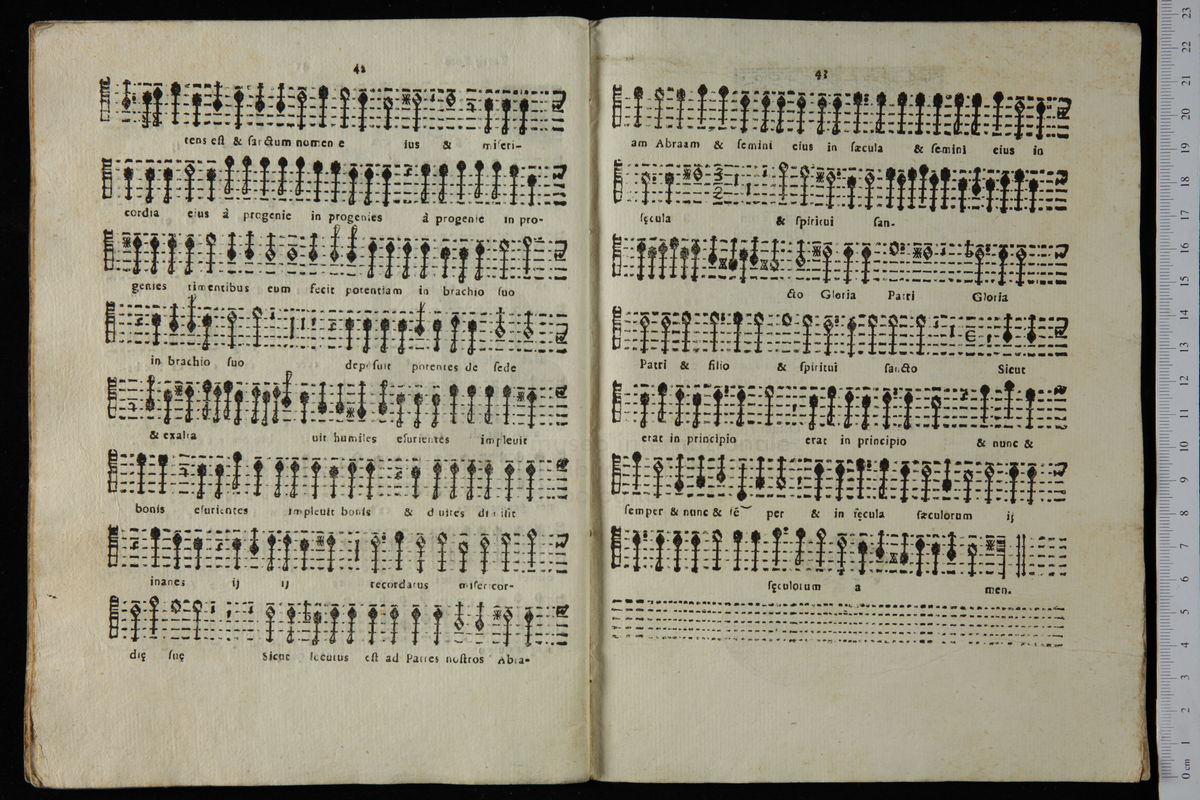 42
tens est & sanctum nomen e ius & miseri-
cordia eius à progenie in progenies à progenie in pro-
genies timentibus eum fecit potentiam in brachio suo
in brachio suo deposuit potentes de sede
& exalta uit humiles esurientes impleuit
bonis esurientes impleuit bonis & diuites dimisit
inanes ij ij recordatus misericor-
dię suę Sicut locutus est ad Patres nostros Abra-
43
am Abraam & semini eius in sæcula & semini eius in
sęcula & spiritui san-
cto Gloria Patri Gloria
Patri & filio & spiritui sancto Sicut
erat in principio erat in principio & nunc &
semper & nunc & sē per & in sęcula sæculorum ij
sęculorum a men.
23
22
21
20
19
18
17
16
15
14
13
12
11
10
9
8
7
6
5
4
3
2
1
0 cm